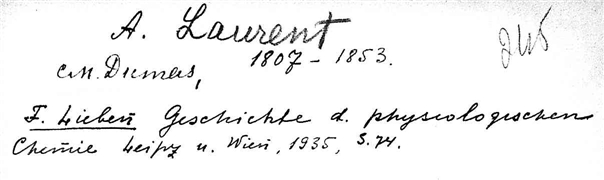 A. Laurent
245
см. Dumas, 1807 – 1853.
F. Lieben Geschichte d. physiologischen
Chemie Leipz u. Wien, 1935, S. 74.